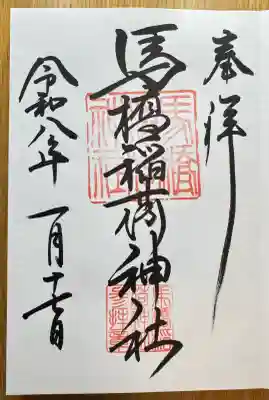 奉拝
馬橋稲荷神社
令和八年一月十七日